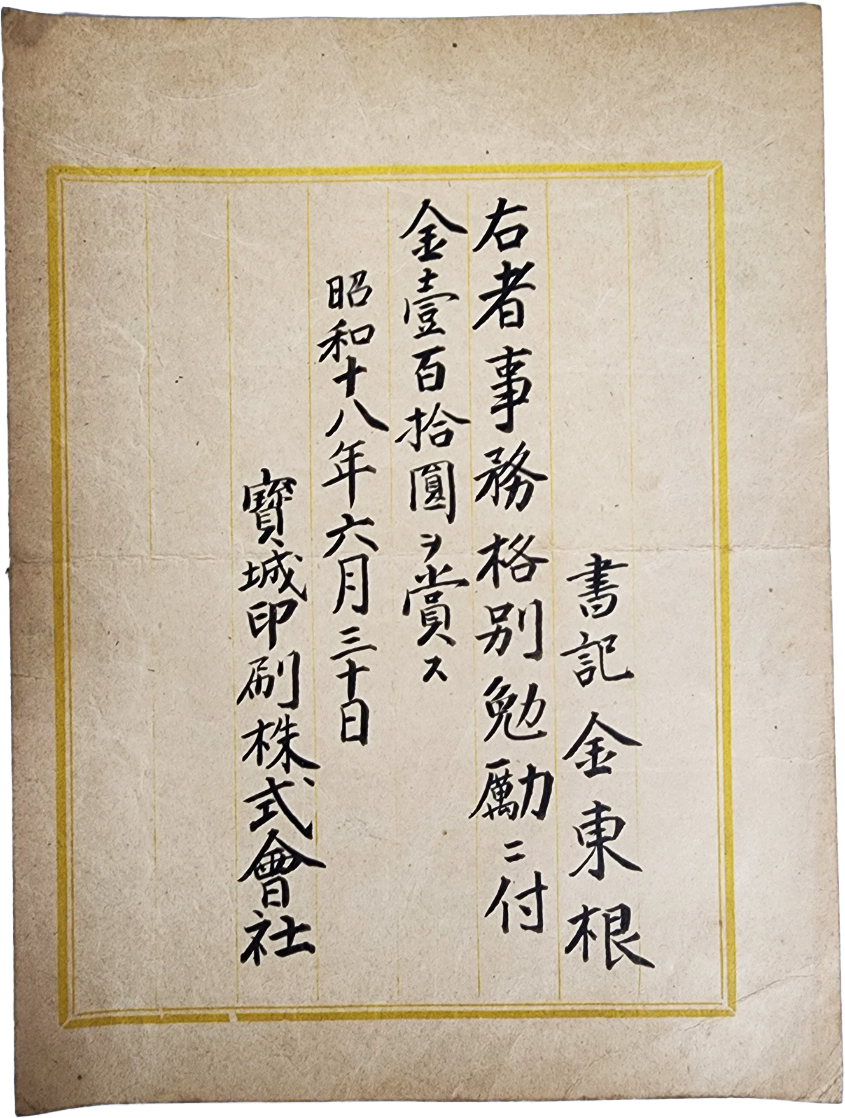 書記 金東根
右者事務格別勉励ニ付
金壹百拾圓ヲ賞ス
昭和十八年六月三十日
寶城印刷株式會社